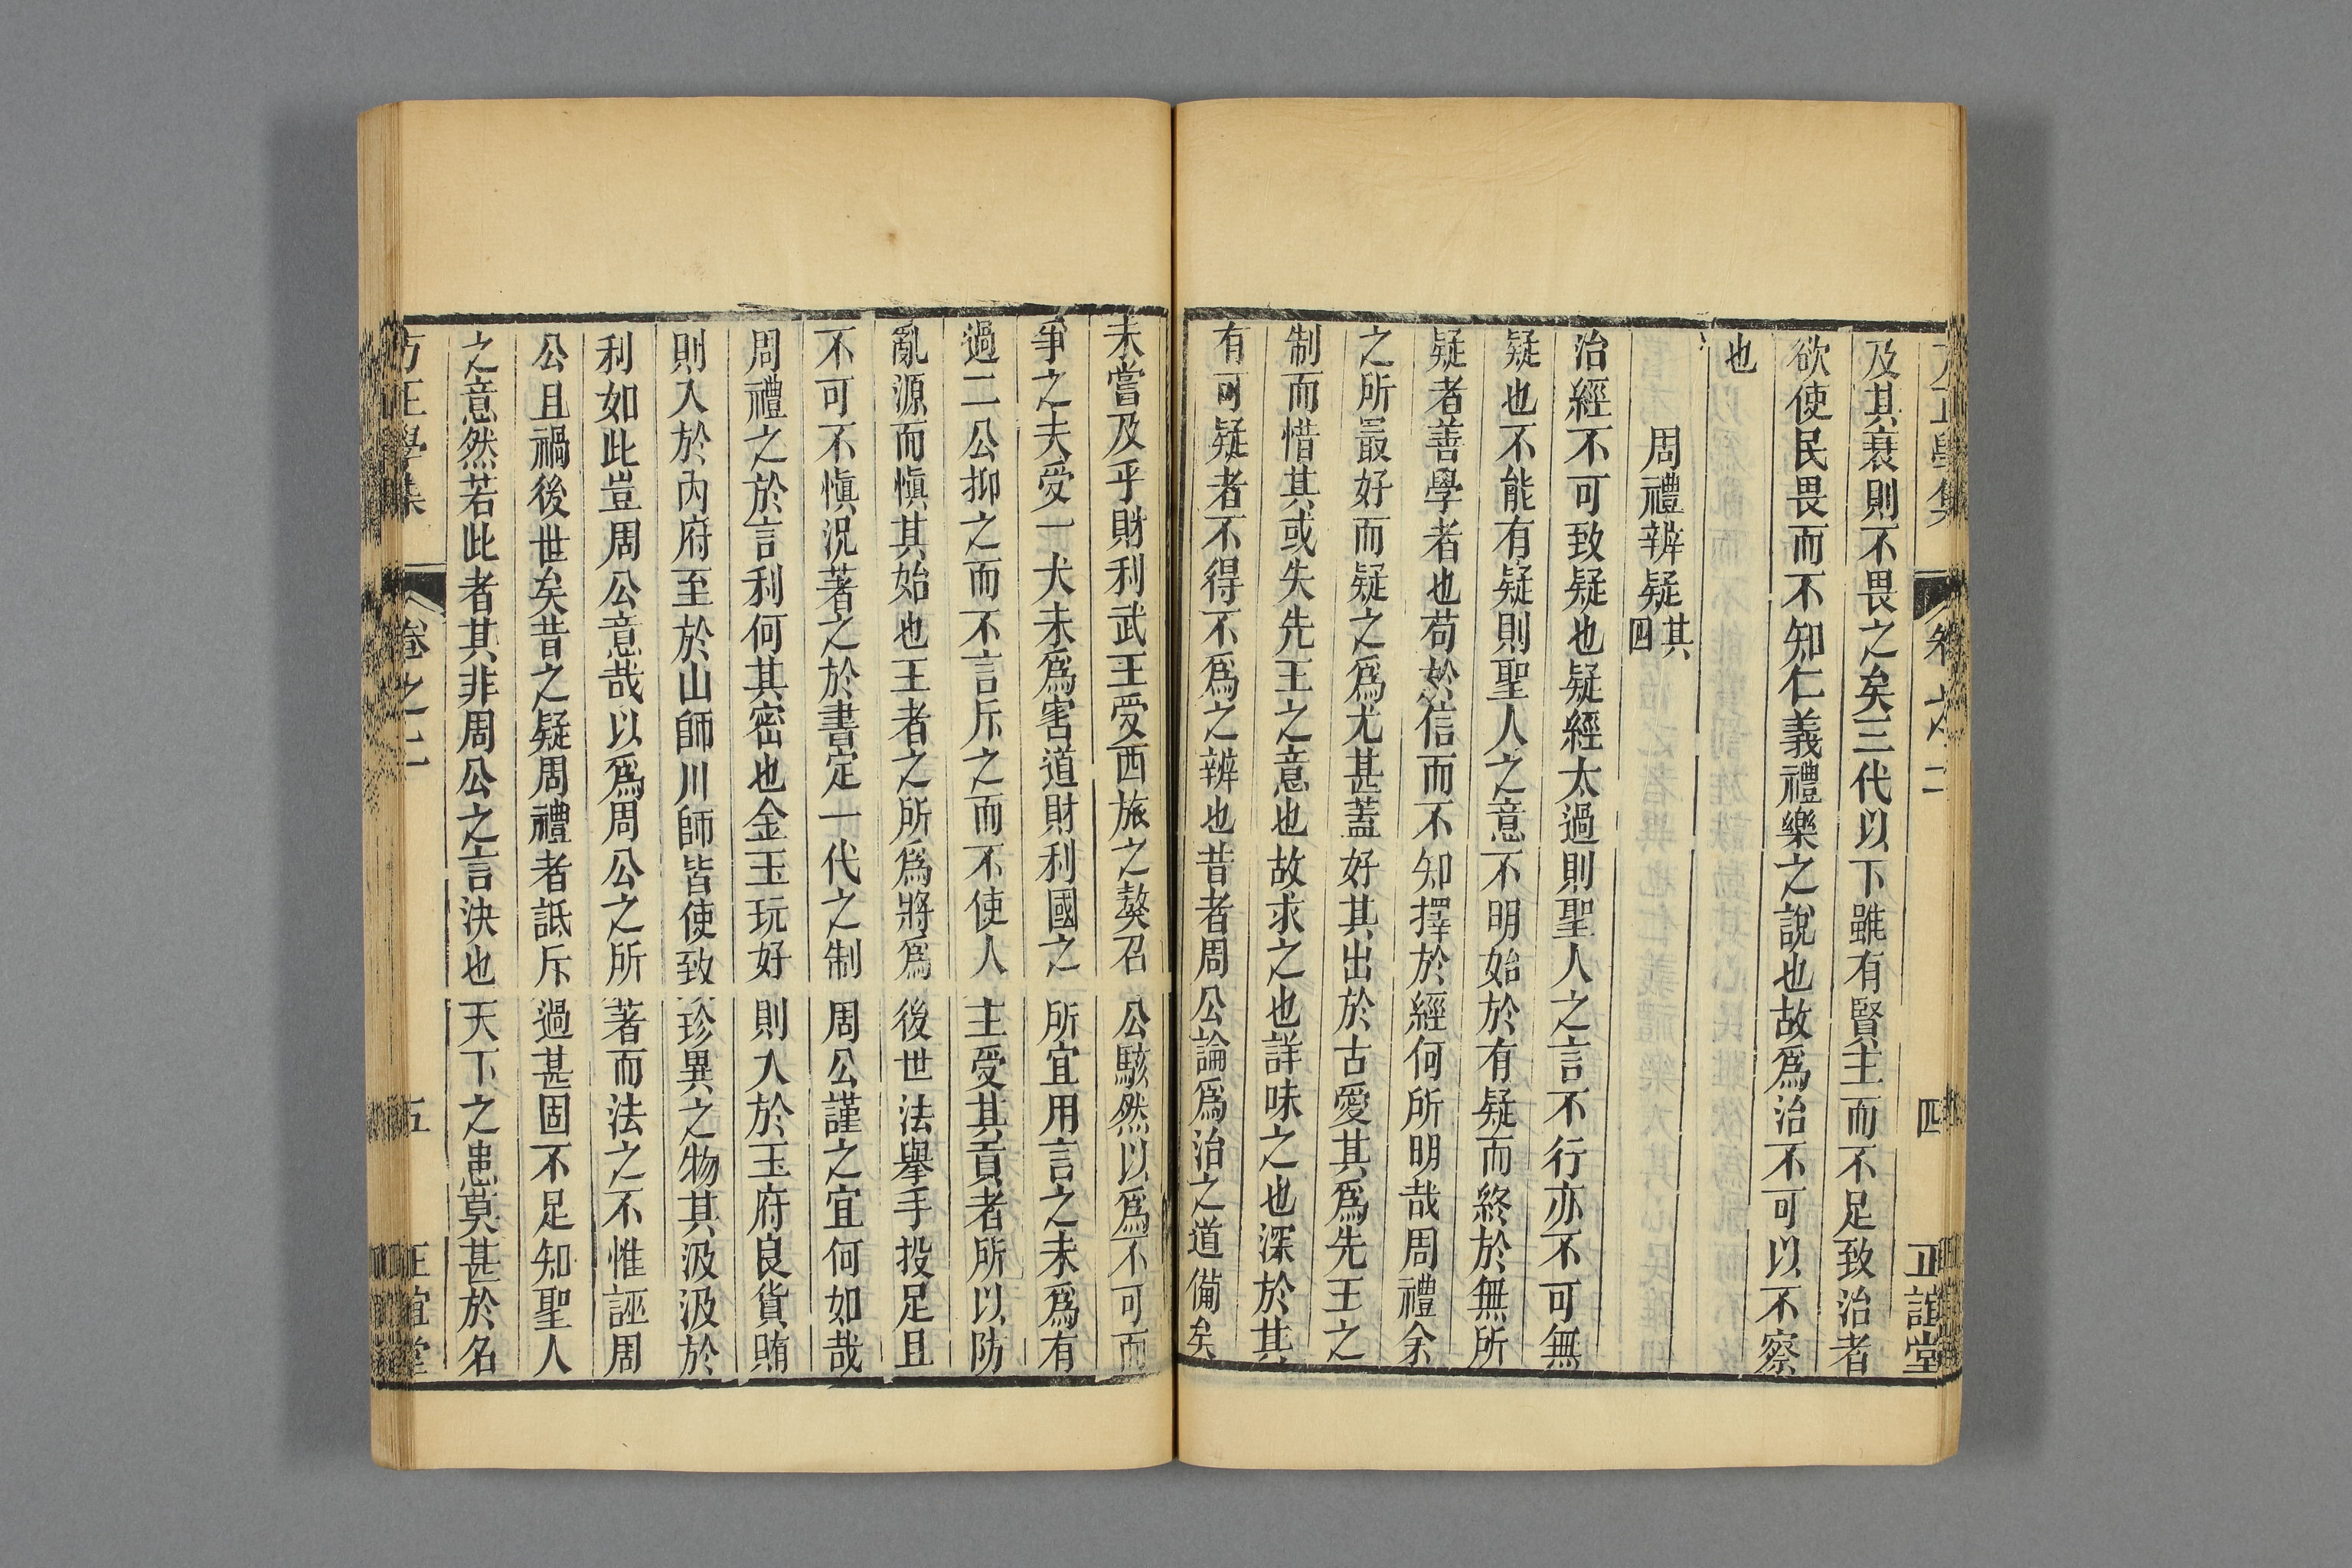 及其衰則不畏之矣三代以下雖有賢主而不足致治者
欲使民畏而不知仁義禮樂之說也故爲治不可以不察
也
周禮辨疑其四
治經不可致疑也疑經太過則聖人之言不行亦不可無
疑也不能有疑則聖人之意不明始於有疑而終於無所
疑者善學者也苟於信而不知擇於經何所明哉周禮余
之所最好而疑之爲尤甚蓋好其出於古愛其爲先王之
制而惜其或失先王之意也故求之也詳味之也深於其
有可疑者不得不爲之辨也昔者周公論爲治之道備矣
未嘗及乎財利武王受西旅之獒召公駭然以爲不可而
爭之夫受一犬未爲害道財利國之所宜用言之未爲有
過二公抑之而不言斥之而不使人主受其貢者所以防
亂源而愼其始也王者之所爲將爲後世法舉手投足且
不可不愼況著之於書定一代之制周公謹之宜何如哉
周禮之於言利何其密也金玉玩好則入於玉府良貨賄
則入於內府至於山師川師皆使致珍異之物其汲汲於
利如此豈周公意哉以爲周公之所著而法之不惟誣周
公且禍後世矣昔之疑周禮者詆斥過甚固不足知聖人
之意然若此者其非周公之言決也天下之患莫甚於名
方正學集 卷之二 五 正誼堂